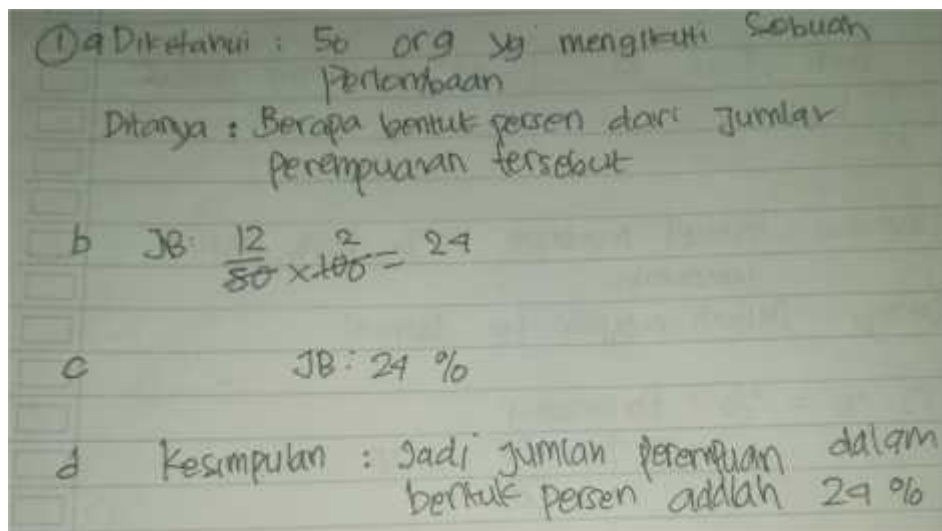 ① a Diketahui : 50 org yg mengikuti Sebuah
Perlombaan
Ditanya : Berapa bentuk persen dari Jumlah
Perempuanan tersebut
b JB: 12/50 x 100 2 = 24
c JB : 24 %
d Kesimpulan : Jadi jumlah perempuan dalam
bentuk persen adalah 24 %